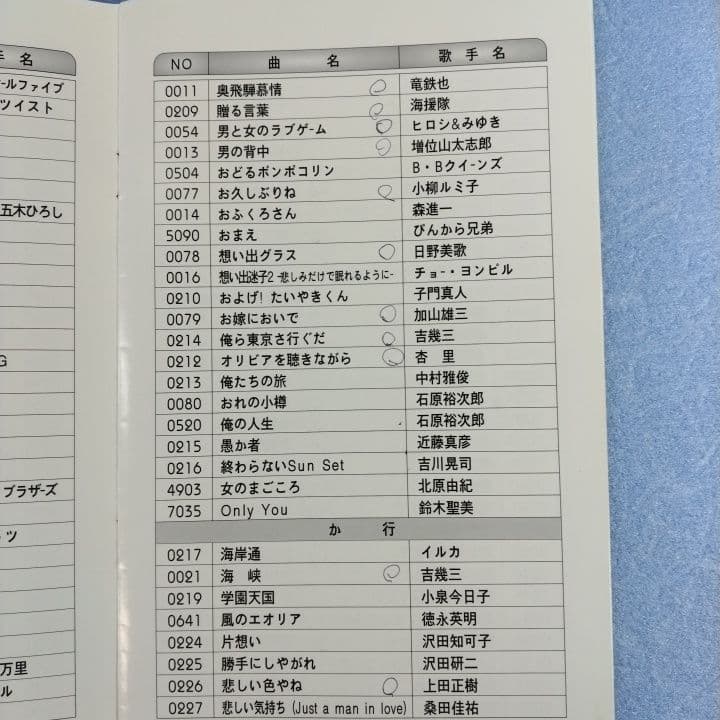 手 名
ールファイブ
ツイスト
五木ひろし
G
ブラザーズ
ツ
万里
ル
NO 曲 名 歌 手 名
0011 奥飛騨慕情 竜鉄也
0209 贈る言葉 海援隊
0054 男と女のラブゲーム ヒロシ&みゆき
0013 男の背中 増位山太志郎
0504 おどるポンポコリン B・Bクイーンズ
0077 お久しぶりね 小柳ルミ子
0014 おふくろさん 森進一
5090 おまえ ぴんから兄弟
0078 想い出グラス 日野美歌
0016 想い出迷子2 -悲しみだけで眠れるように- チョー・ヨンピル
0210 およげ! たいやきくん 子門真人
0079 お嫁においで 加山雄三
0214 俺ら東京さ行ぐだ 吉幾三
0212 オリビアを聴きながら 杏 里
0213 俺たちの旅 中村雅俊
0080 おれの小樽 石原裕次郎
0520 俺の人生 石原裕次郎
0215 愚か者 近藤真彦
0216 終わらないSun Set 吉川晃司
4903 女のまごころ 北原由紀
7035 Only You 鈴木聖美
か 行
0217 海岸通 イルカ
0021 海 峡 吉幾三
0219 学園天国 小泉今日子
0641 風のエオリア 徳永英明
0224 片想い 沢田知可子
0225 勝手にしやがれ 沢田研二
0226 悲しい色やね 上田正樹
0227 悲しい気持ち (Just a man in love) 桑田佳祐